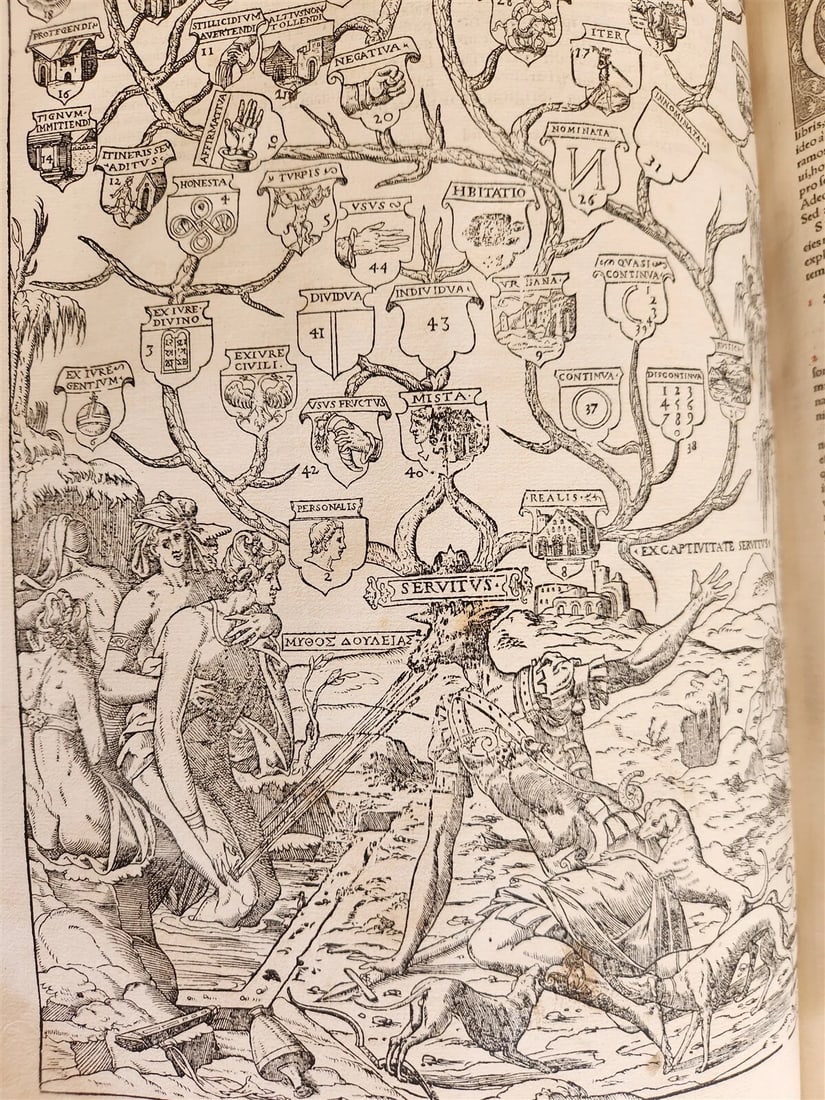 18
PROTEGENDI
16
STILLICIDIVM
AVERTENDI
11
ALTIVS NON
TOLLENDI
21
NEGATIVA
20
28
ITER
17
TIGNVM
IMMITTENDI
14
ITINERIS SEV
ADITVS
12
AFFIRMATIVA
10
NOMINATA
26
INNOMINATA
31
HONESTA
4
TVRPIS
5
VSVS
44
HBITATIO
EX IVRE
DIVINO
3
DIVIDVA
41
INDIVIDVA
43
VRBANA
9
QVASI
CONTINVA
1
2
3
39
EX IVRE
GENTIVM
6
EX IVRE
CIVILI
VSVS FRVCTVS
42
MISTA
40
CONTINVA
37
DISCONTINVA
1 2 3
4 5 6
7 8 9
0
38
RVSTICA
PERSONALIS
2
REALIS
8
EX CAPTIVITATE SERVITVS
SERVITVS
ΜΥΘΟΣ ΔΟΥΛΕΙΑΣ
libris,
ideo a
ramo
ui, ho
pro se
Adec
Sed
S
cies
expl
tem